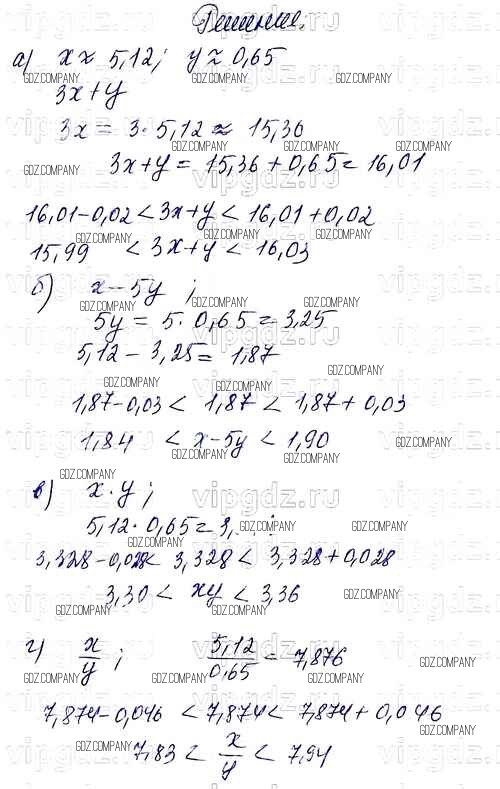 Решение.
а) x ≈ 5,12; y ≈ 0,65
3x+y
3x = 3·5,12 ≈ 15,36
3x+y = 15,36 + 0,65 = 16,01
16,01-0,02 < 3x+y < 16,01+0,02
15,99 < 3x+y < 16,03
б) x-5y ;
5y = 5·0,65 = 3,25
5,12 - 3,25 = 1,87
1,87-0,03 < 1,87 < 1,87+0,03
1,84 < x-5y < 1,90
в) x·y ;
5,12·0,65 = 3,
3,328-0,028 < 3,328 < 3,328+0,028
3,30 < xy < 3,36
г) x/y ; 5,12/0,65 = 7,876
7,874-0,046 < 7,874 < 7,874+0,046
7,83 < x/y < 7,94